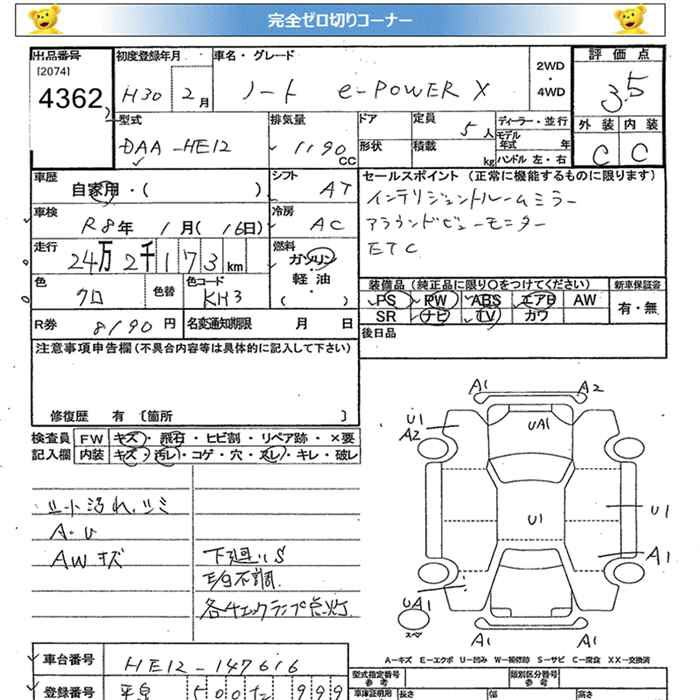 完全ゼロ切りコーナー
出品番号 [2074] 4362
初度登録年月 H30年 2月
車名・グレード ノート e-POWER X
2WD・4WD
評価点 3.5
外装 C 内装 C
型式 DAA-HE12
排気量 1190 CC
ドア 形状
定員 5人
積載 kg
ディーラー・並行
モデル年式 年
ハンドル 左・右
車歴 自家用・( )
シフト AT
セールスポイント (正常に機能するものに限ります)
インテリジェントルームミラー
アラウンドビューモニター
ETC
車検 R8年 1月( 16日)
冷房 AC
走行 24万2千173km
燃料 ガソリン・軽油・( )
色 クロ 色替 色コード KH3
装備品 (純正品に限り○をつけてください)
PS PW ABS エアB AW
SR ナビ TV カワ
新車保証書 有・無
R券 8190円 名変通知期限 月 日
後日品
注意事項申告欄(不具合内容等は具体的に記入して下さい)
修復歴 有 〔箇所 〕
検査員記入欄
FW キズ・飛石・ヒビ割・リペア跡・×要
内装 キズ・汚レ・コゲ・穴・スレ・キレ・破レ
A・U
AWキズ
下廻りS
各チェックランプ点灯
A1 A2
U1
A2
UA1
U1
U1
A1
UA1
スペア
A1 A1
A-キズ E-エクボ U-凹み W-補修跡 S-サビ C-腐食 XX-交換済
車台番号 HE12-147616
型式指定番号 類別区分番号
登録番号 999
車庫証明用参考 長さ 幅 高さ